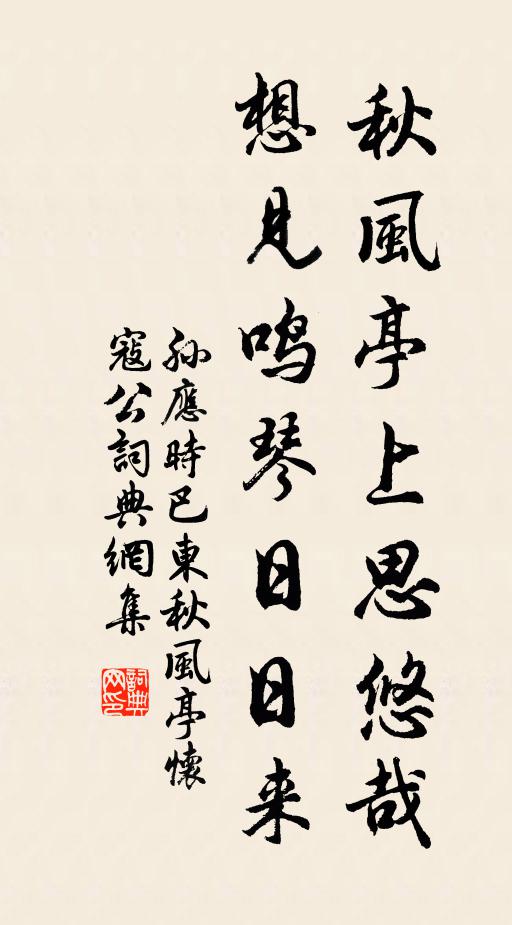 秋風亭上思悠哉
想見鸣琴日日来
孙應時巴東秋風亭懷
寇公詞典網集
詞典网印